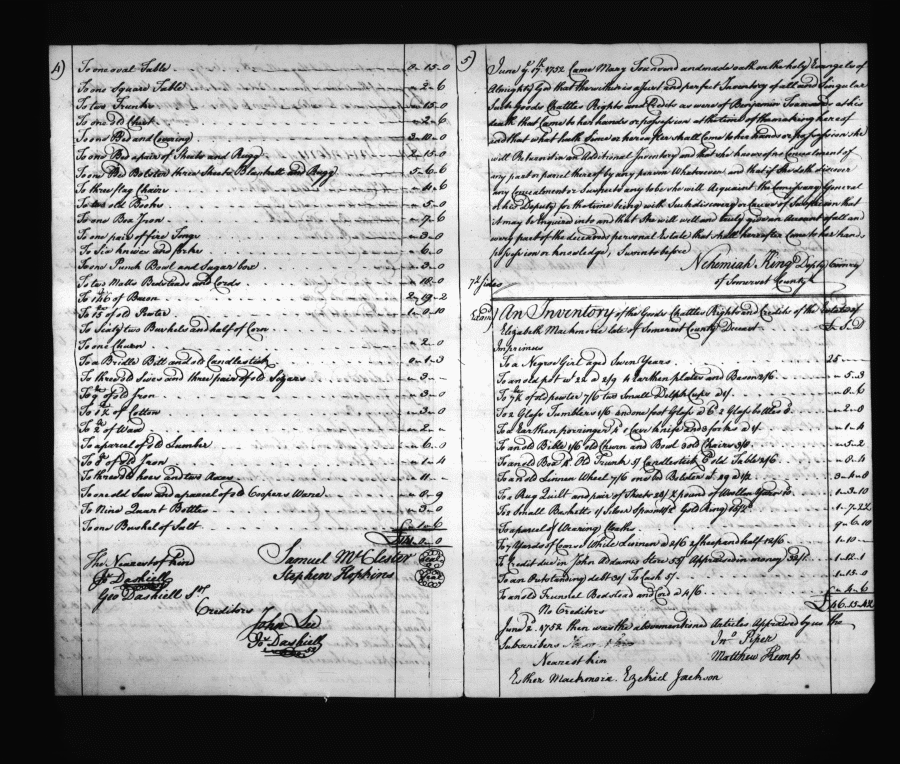 4)
To one oval Table 0-15-0
To one Square Table -2-6
To two Trunks -15-0
To one old Chest -2-6
To one Bed and Covering 3-10-0
To one Bed a pair of Sheets and Rugg 2-15-0
To one Bed Bolster three Sheets Blankett and Rugg 5-6-6
To three flag Chairs -4-6
To two old Books -5-0
To one Box Iron -7-6
To one pair of fire Tongs -3-0
To Six knives and forks -6-0
To one Punch Bowl and Sugar box -3-0
To two Matts Bedsteads and Cords -10-0
To 146 of Bacon 2-19-2
To 15 of old Pewter 1-0-10
To Sixty two Bushels and half of Corn
To one Churn -2-0
To a Bridle Bitt and old Candlestick 0-1-3
To three old Sives and three pair of old -3-
To 9 of old Iron -3-0
To of Cotton -3-0
To 2 of -2-
To a parcel of old Lumber -6-0
To 8 of old Iron -1-4
To three old hoes and two Axes -11-
To one old Saw and a parcel of old Coopers Ware -0-9
To Nine Quart Bottles -3-0
To one Bushel of Salt -1-6
The Nearest of kin
Samuel McClester
Stephen Hopkins
Seal
Seal
Js. Dashiell
Geo Dashiell
Creditors
John Lee
Js. Dashiell
5)
June 9. 17. 1752 Came Mary Toadvine and made oath on the holy Evangels of
Almighty God that the within is a just and perfect Inventory of all and Singular
the Goods Chattles Rights and Credits as were of Benjamin at his
death that Came to her hands or possession at the time of the making hereof
and that what hath Since or hereafter shall Come to her hands or possession she
will Return in an Additional Inventory and that she knows of no Concealment of
any part or parcel thereof by any person Whatsoever and that if She doth discover
any Concealment or Suspects any to be she will Acquaint the Commissary General
or his Deputy for the time being with Such discovery or Cause of Suspicion that
it may be Enquired into and that she will well and truly give an Account of all and
every part of the deceased personal Estate that shall hereafter Come to her hands
possession or knowledge, Sworn to before
Nehemiah King Depty Comry
of Somerset County
7 1/2 sides
An Inventory of the Goods Chattles Rights and Credits of the Estate of
Elizabeth Mackmorie late of Somerset County Deceast £ S. D
Imprimis
To a Negroe Girl aged Seven Years 25--
To an old pot wt 22 a 2/9 4 Earthen plates and Bason 2/6 -5-3
To 7 1/2 of old pewter 7/6 two Small Delph Cups a 1/ -8-6
To 2 Glass Tumblers 1/6 and one foot Glass a 6 2 Glass bottles -2-0
To a Earthen porringer 1 Case knife and 3 forks a 1/ -1-4
To an old Bible 1/6 old Churn and Bowl 3 old Chairs 3/8 -5-2
To an old Box Old Trunk 5/ Candlestick old Table 2/6 -8-4
To an old Linnen Wheel 7/6 one bed Bolster wt 29 a 3-4-0
To a Rug Quilt and pair of Sheets 20/ 2 pound of Wollen Yarn 1-3-10
To 2 Small Baskets 1/ Silver Spoons Gold Ring 1-7-
To a parcel of Wearing Cloaths 9-6-10
To 7 Yards of Coarse White Linnen a 2/6 2 sheep and half 12/6 1-10-
To Credit due in John Adams Store 33/ Appraised in money 1-12-1
To an Outstanding debt 30/ To Cash 5/ 1-15-0
To an old Trunnel Bedstead and Cord a 4/6 -4-6
No Creditors
June 2. 1752 then was the abovementioned Articles Appraised by us the
Subscribers
Jno. Piper
Matthew Kemp
Nearest kin
Esther Mackmorie. Ezekiel Jackson